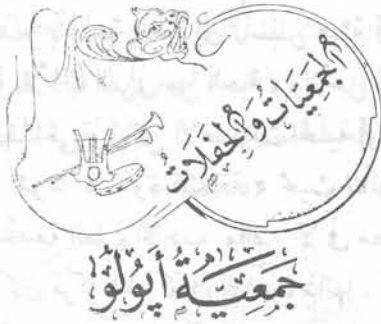 الجمعيات والحفلات
جمعية أپولو